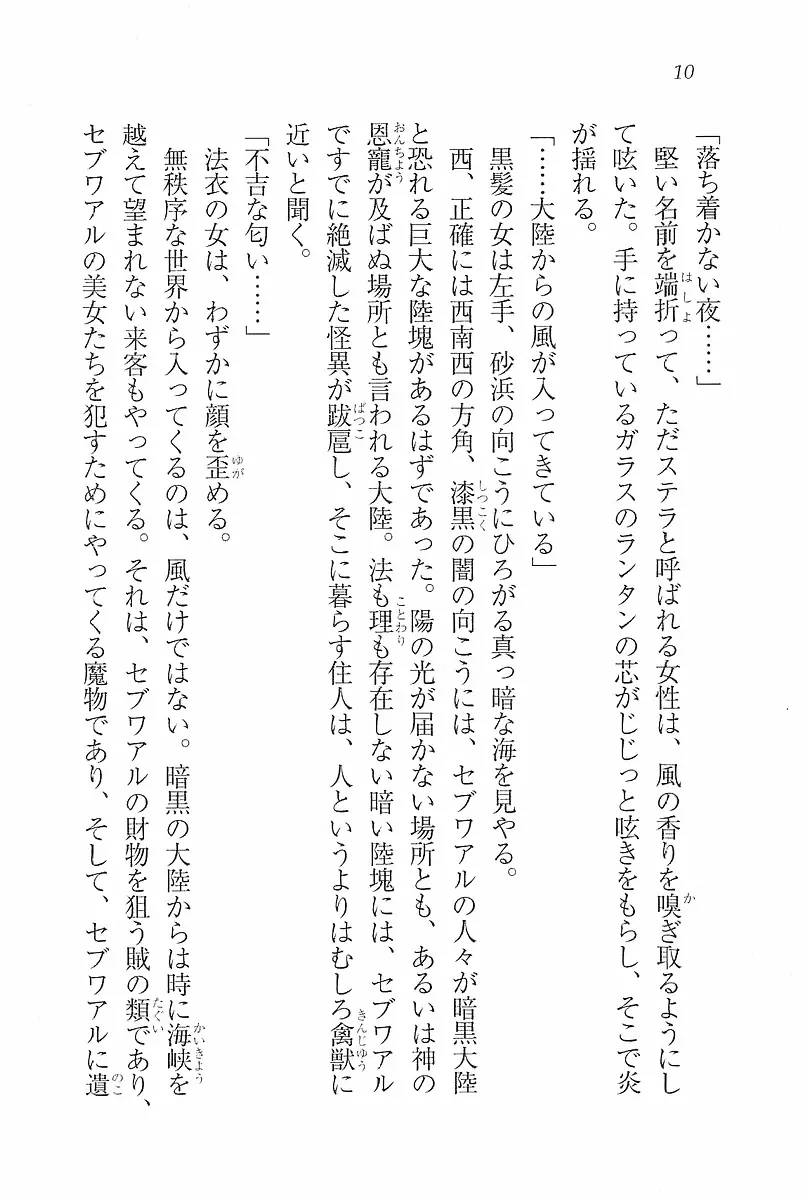 10
「落ち着かない夜……」
堅い名前を端折って、ただステラと呼ばれる女性は、風の香りを嗅ぎ取るようにし
て呟いた。手に持っているガラスのランタンの芯がじじっと呟きをもらし、そこで炎
が揺れる。
「……大陸からの風が入ってきている」
黒髪の女は左手、砂浜の向こうにひろがる真っ暗な海を見やる。
西、正確には西南西の方角、漆黒の闇の向こうには、セブワアルの人々が暗黒大陸
と恐れる巨大な陸塊があるはずであった。陽の光が届かない場所とも、あるいは神の
恩寵が及ばぬ場所とも言われる大陸。法も理も存在しない暗い陸塊には、セブワアル
ですでに絶滅した怪異が跋扈し、そこに暮らす住人は、人というよりはむしろ禽獣に
近いと聞く。
「不吉な匂い……」
法衣の女は、わずかに顔を歪める。
無秩序な世界から入ってくるのは、風だけではない。暗黒の大陸からは時に海峡を
越えて望まれない来客もやってくる。それは、セブワアルの財物を狙う賊の類であり、
セブワアルの美女たちを犯すためにやってくる魔物であり、そして、セブワアルに遺